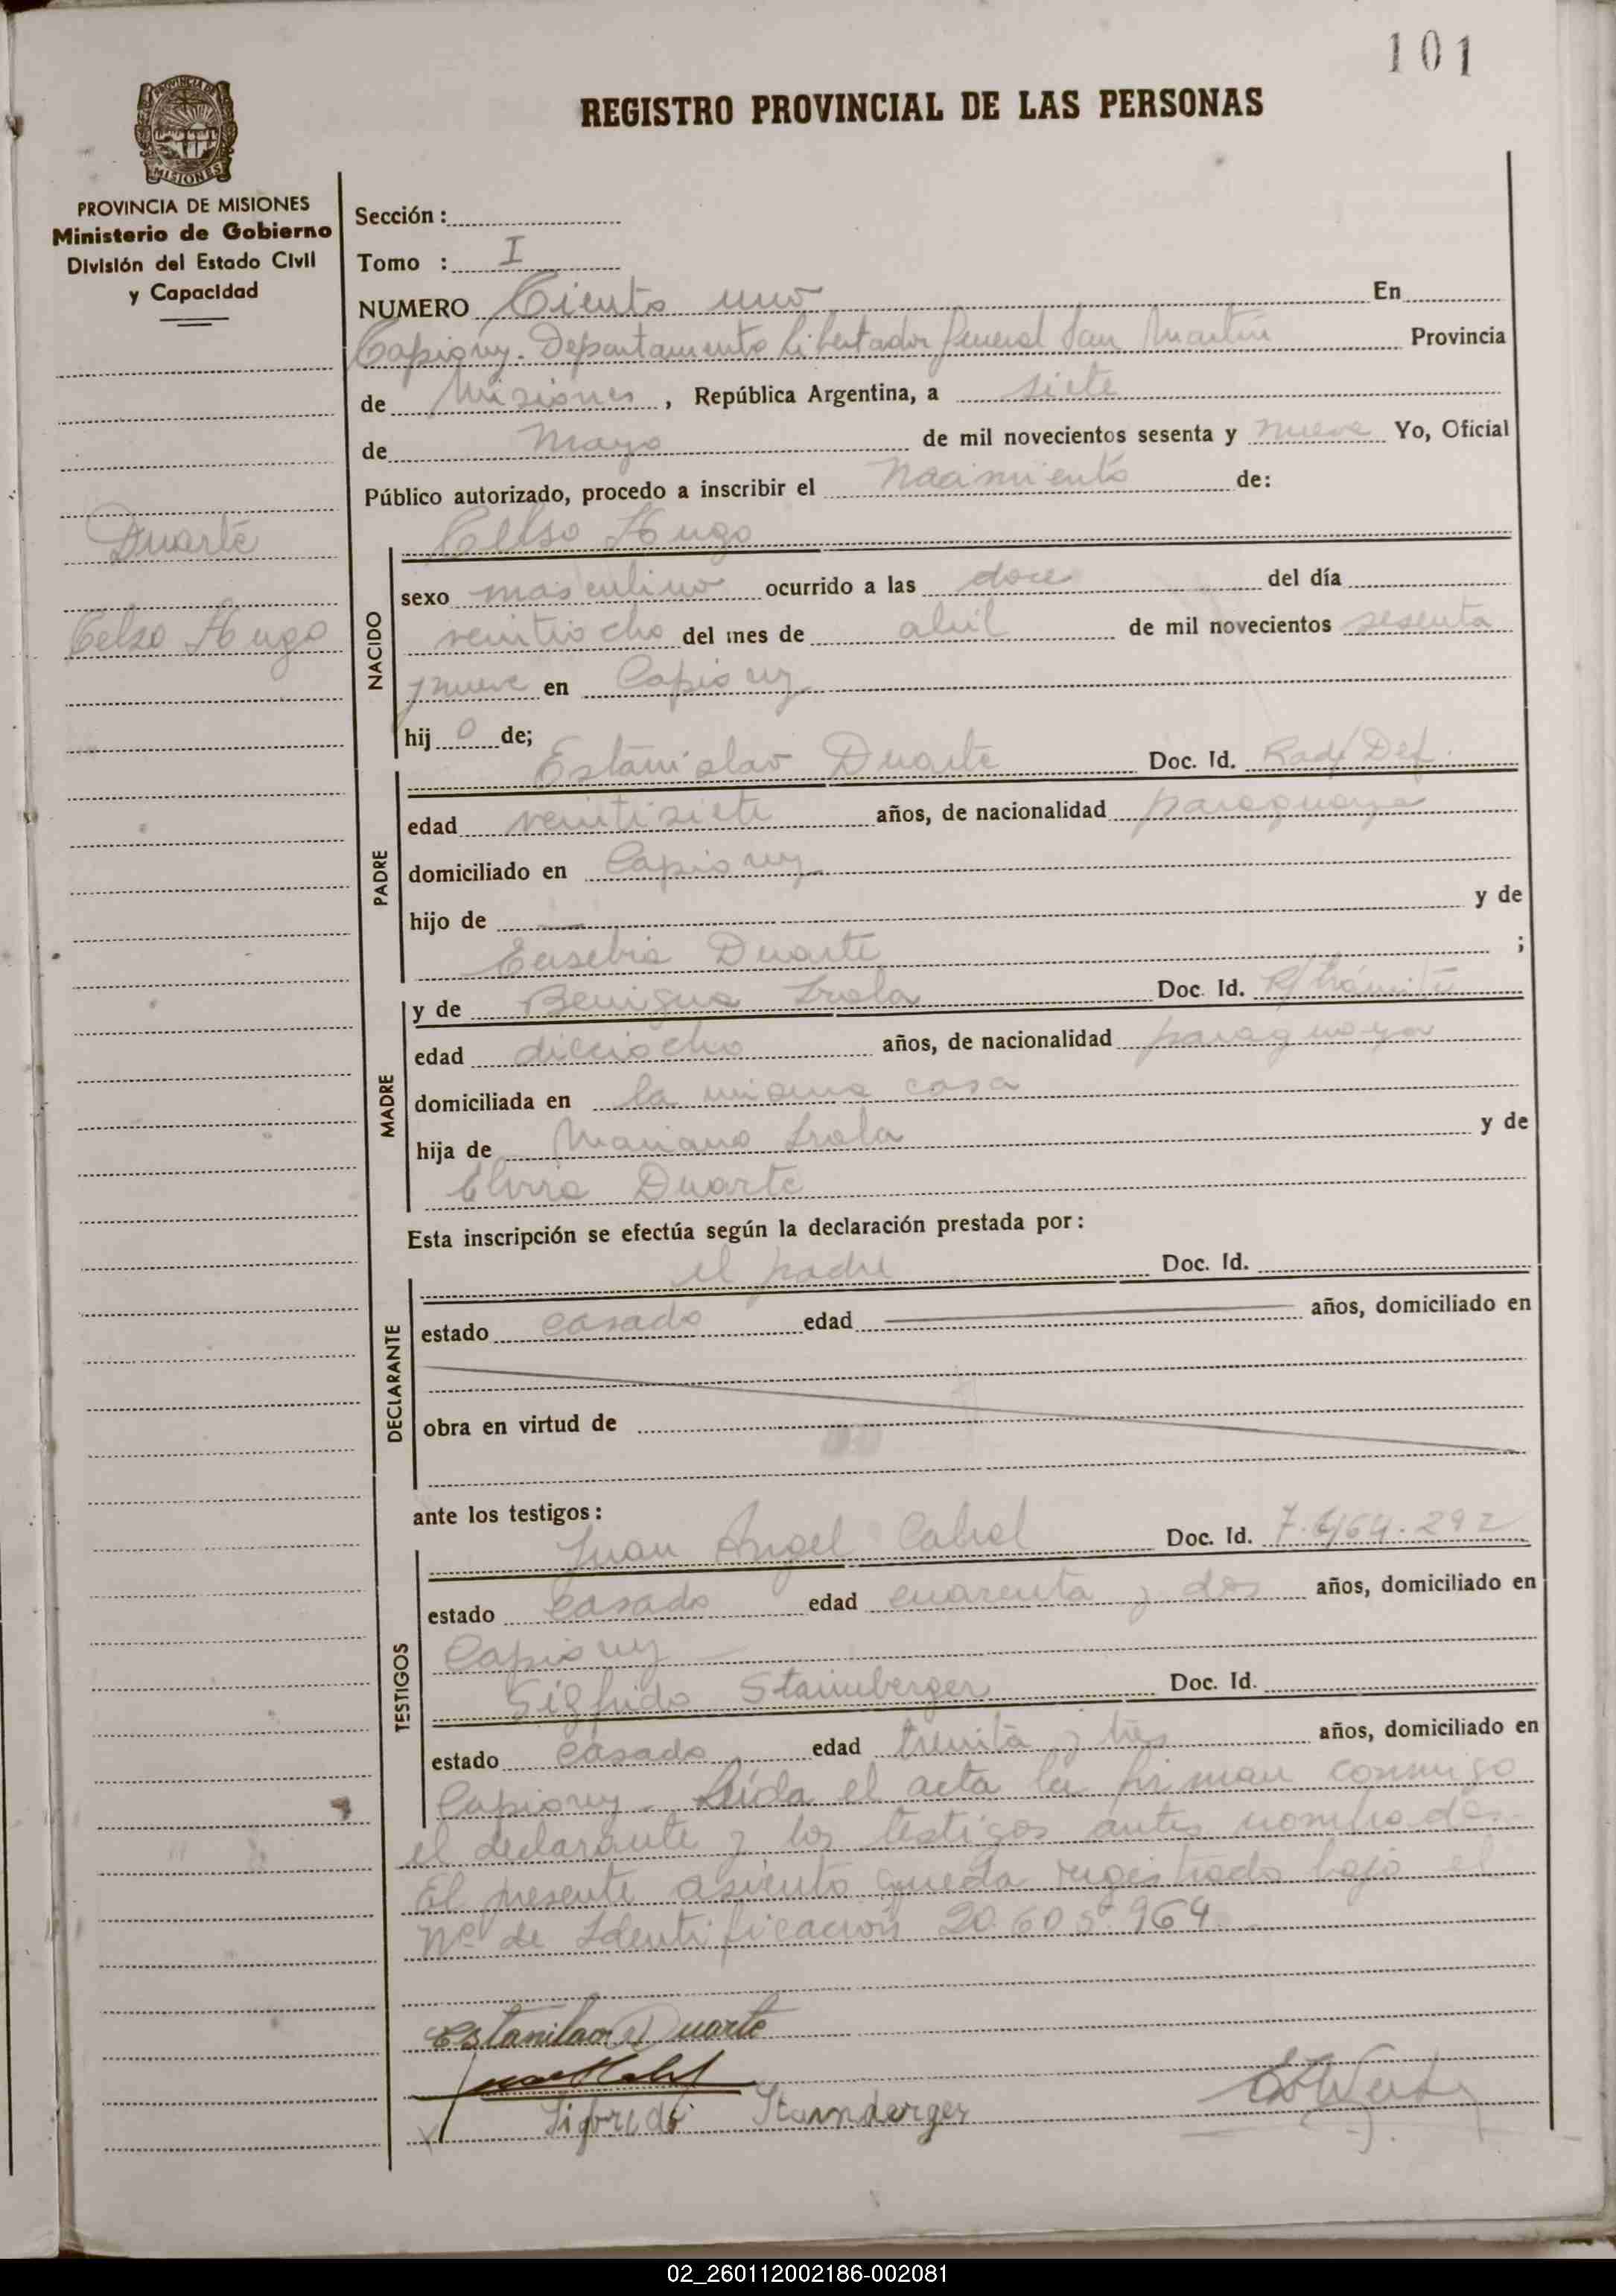 101
REGISTRO PROVINCIAL DE LAS PERSONAS
MISIONES
PROVINCIA DE MISIONES
Ministerio de Gobierno
División del Estado Civil
y Capacidad
Duarte
Celso Hugo
Sección :
Tomo : I
NUMERO Ciento uno En
Capiovy. Departamento Libertador General San Martín Provincia
de Misiones, República Argentina, a siete
de Mayo de mil novecientos sesenta y nueve Yo, Oficial
Público autorizado, procedo a inscribir el Nacimiento de:
Celso Hugo
NACIDO
sexo masculino ocurrido a las doce del día
veintiocho del mes de abril de mil novecientos sesenta
y nueve en Capiovy
hij o de;
PADRE
Estanislao Duarte Doc. Id. Rad/Def.
edad veintisiete años, de nacionalidad paraguaya
domiciliado en Capiovy
hijo de — y de
Eusebia Duarte ;
MADRE
y de Benigna Irala Doc. Id. R/trámite
edad dieciocho años, de nacionalidad paraguaya
domiciliada en la misma casa
hija de Mariano Irala y de
Elvira Duarte
Esta inscripción se efectúa según la declaración prestada por :
DECLARANTE
el padre Doc. Id.
estado casado edad años, domiciliado en
obra en virtud de
ante los testigos :
TESTIGOS
Juan Angel Cabral Doc. Id. 7.464.292
estado casado edad cuarenta y dos años, domiciliado en
Capiovy
Sigfrido Stainberger Doc. Id.
estado casado edad treinta y tres años, domiciliado en
Capiovy. Leída el acta la firman conmigo
el declarante y los testigos antes nombrados.
El presente asiento queda registrado bajo el
Nº de Identificación 20.605.964
Estanilao Duarte
Sigfredo Starnberger
02_260112002186-002081